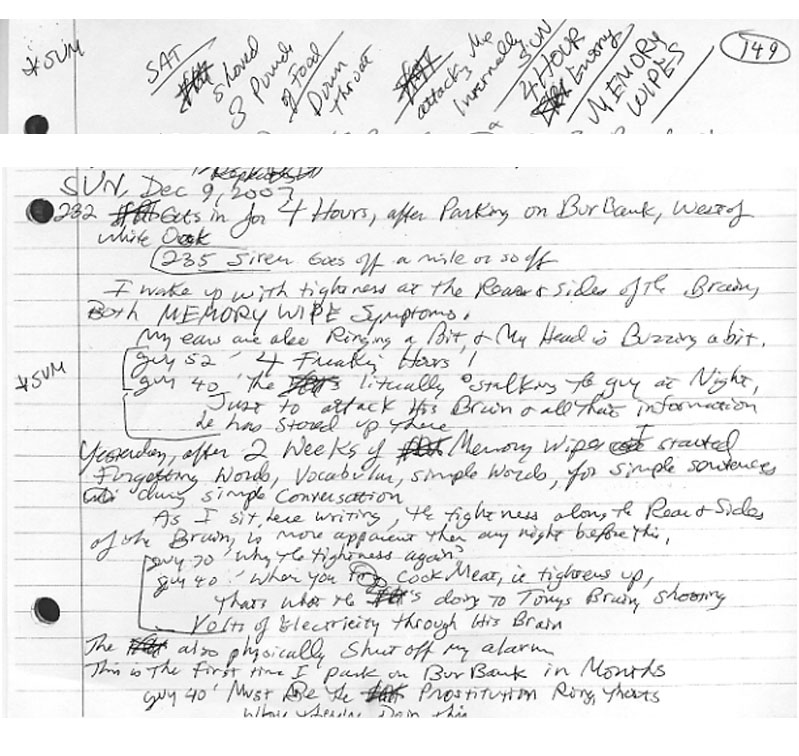 * SUM
SAT
Shoved
3 Pounds
of Food
Down
throat
attacks Me
Internally
SUN
4 HOUR
MEMORY
WIPES
149
SUN, Dec 9, 2007
232 Gets in for 4 Hours, after Parking on BurBank, West of
White Oak
235 Siren Goes off a mile or so off
I wake up with tightness at the Rear & sides of the Brain,
Both MEMORY WIPE Symptoms.
My ears are also Ringing a Bit, & My Head is Buzzing a bit.
guy 52 ' 4 Freakin Hours !
* SUM
guy 40 ' The literally stalking the guy at Night,
Just to attack His Brain & all that information
he has stored up there
Yesterday, after 2 Weeks of Memory Wipes I started
Forgetting Words, Vocabular, simple words, for simple sentences
during simple Conversation
As I sit here writing, the tightness along the Rear & Sides
of the Brain, is more apparent then any night before this.
guy 70 ' Why the tightness again?
guy 40 ' When you Cook Meat, it tightens up,
thats what the 's doing to Tonys Brain, shooting
Volts of Electricity through His Brain
The also physically Shut off my alarm
This is the first time I park on BurBank in Months
guy 40 ' Must Be the Prostitution Ring, thats